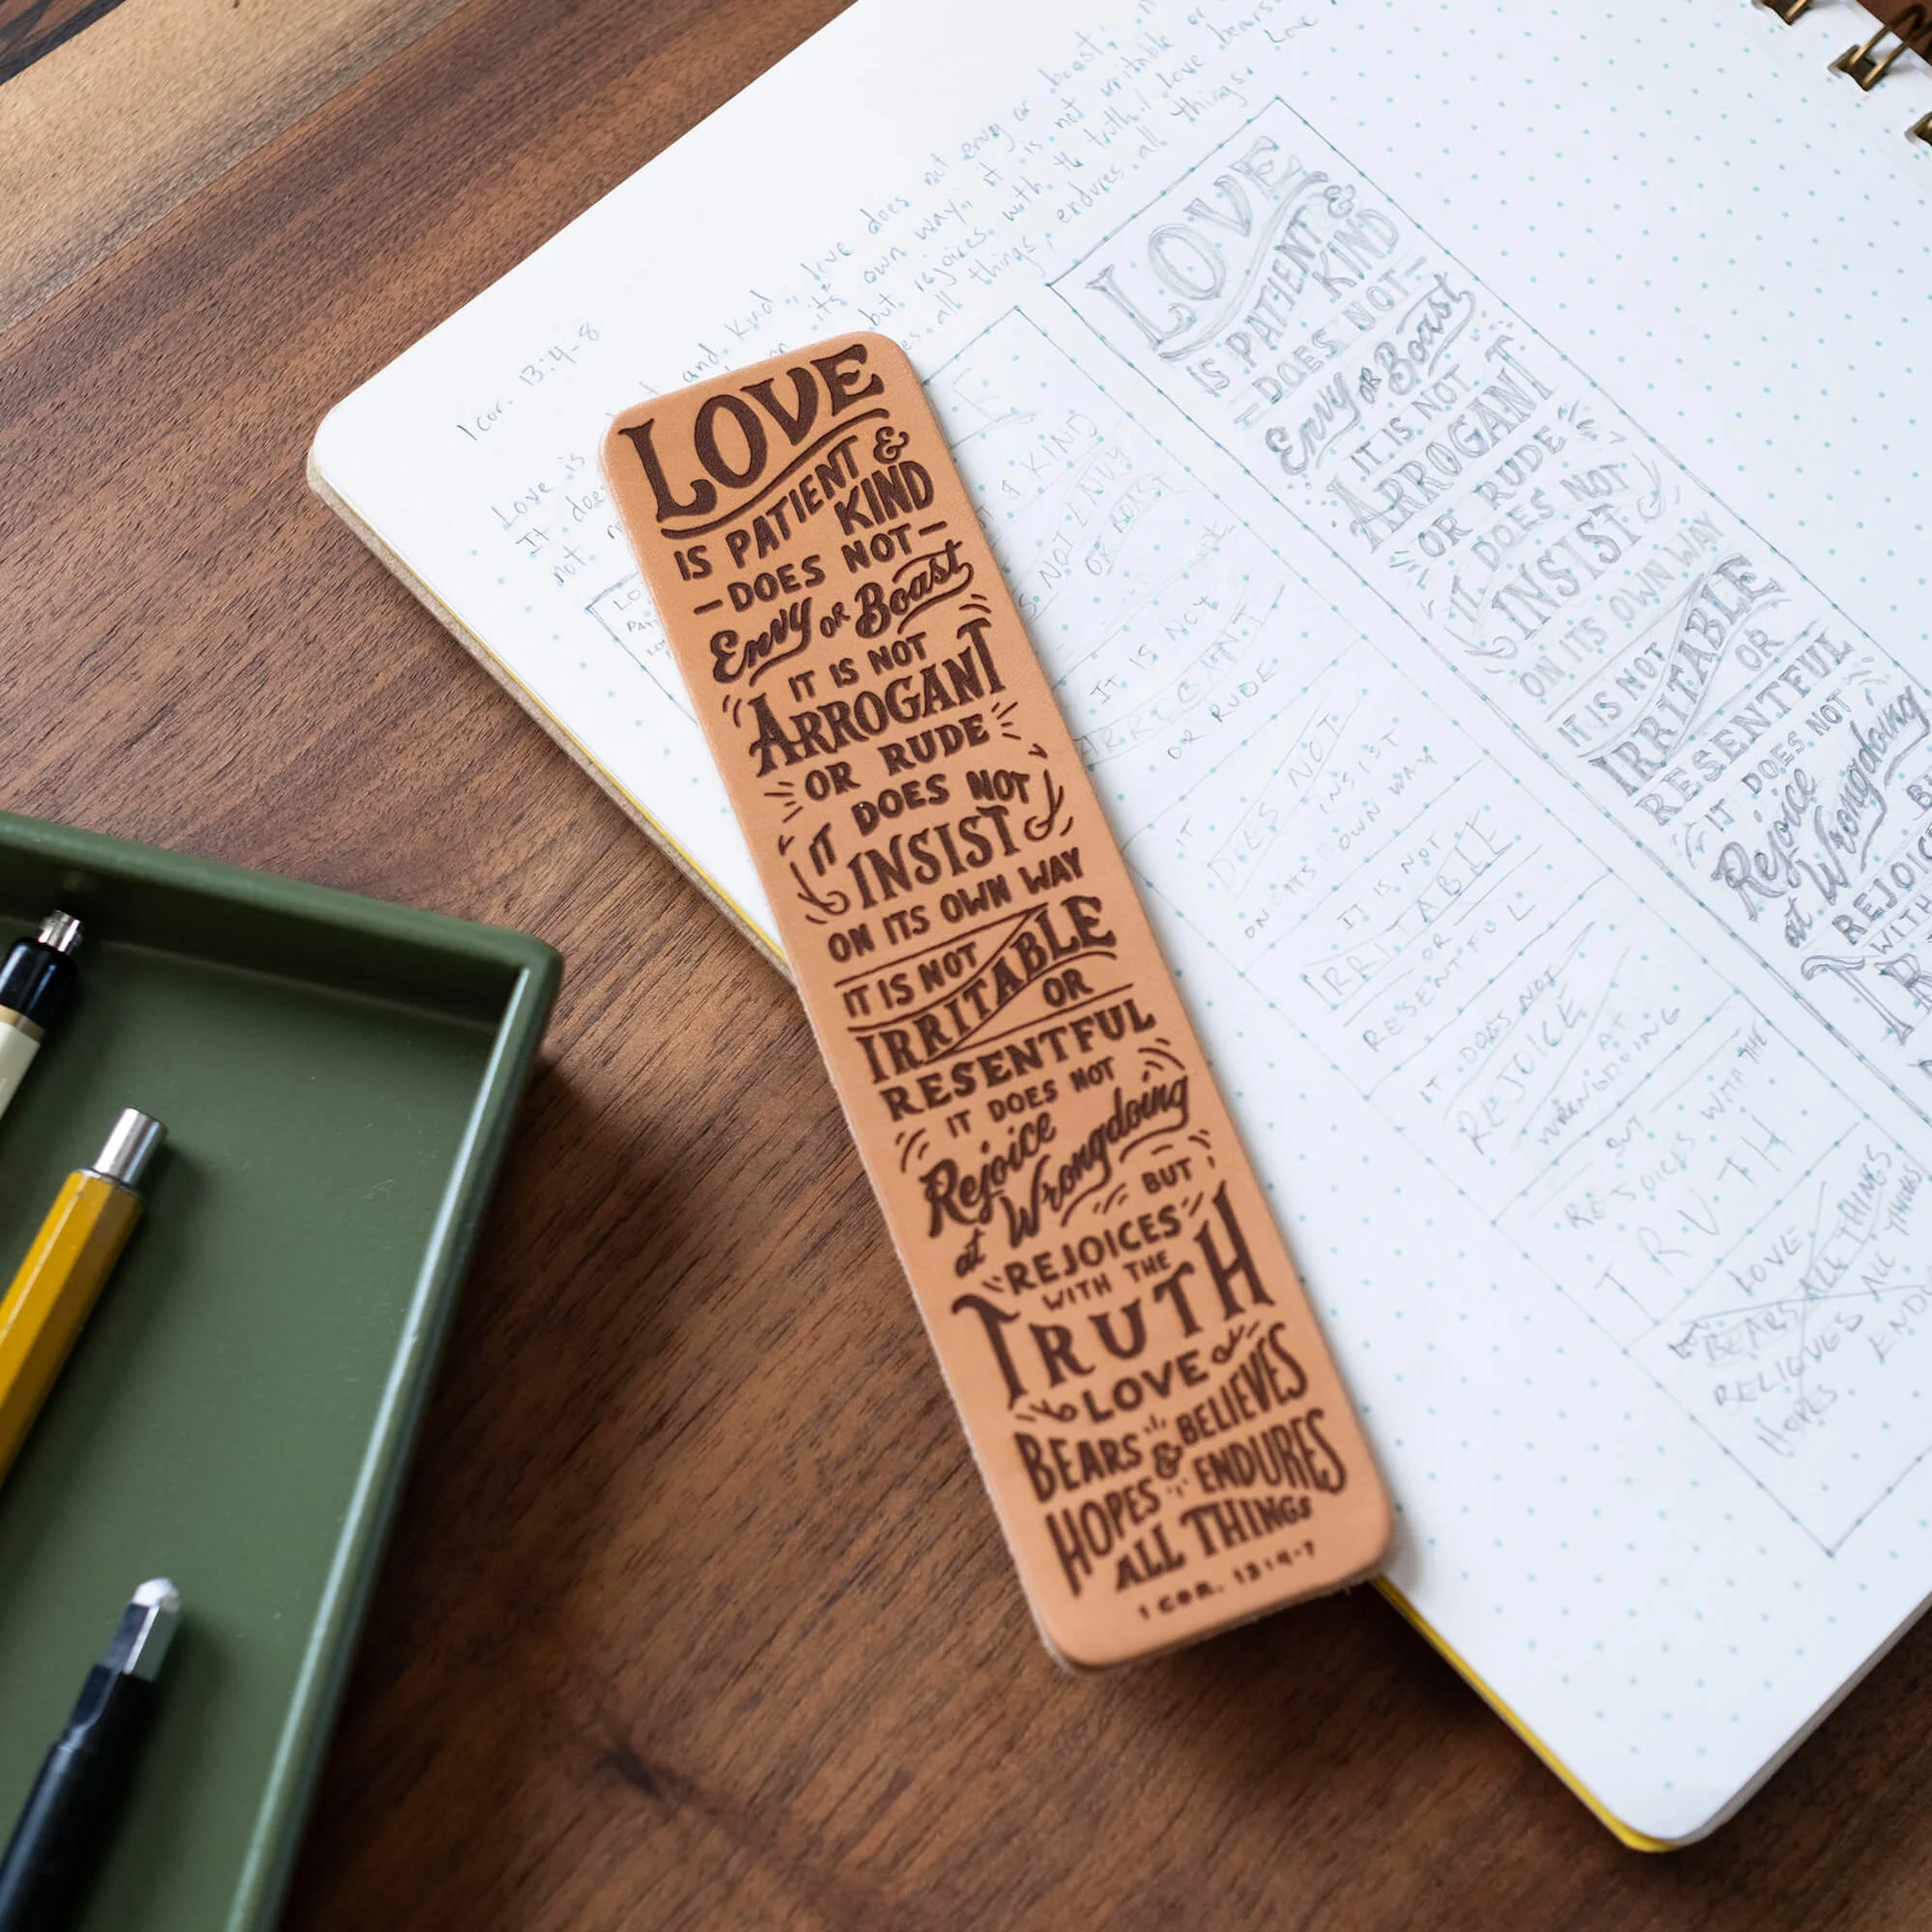 LOVE
IS PATIENT &
KIND
- DOES NOT -
Envy OR Boast
IT IS NOT
ARROGANT
OR RUDE
IT DOES NOT
INSIST
ON ITS OWN WAY
IT IS NOT
IRRITABLE
OR
RESENTFUL
IT DOES NOT
Rejoice
at Wrongdoing
BUT
REJOICES
WITH THE
TRUTH
LOVE
BEARS & BELIEVES
HOPES ENDURES
ALL THINGS
1 COR. 13:4-7
1 cor. 13:4-8
Love is and kind, love does not envy or boast;
It does its own way; it is not irritable or
not but rejoices with th truth, love bears
all things, endures all things. Love
LOVE
IS PATIENT &
KIND
- DOES NOT -
Envy OR Boast
IT IS NOT
ARROGANT
OR RUDE
IT DOES NOT
INSIST
ON ITS OWN WAY
IT IS NOT
IRRITABLE
OR
RESENTFUL
IT DOES NOT
Rejoice
at Wrongdoing
REJOIC
WITH
KIND
NOT ENVY
OR BOAST
IT IS NOT
ARROGANT
OR RUDE
IT DOES NOT
INSIST
ON ITS OWN WAY
IT IS NOT
IRRITABLE
OR
RESENTFUL
IT DOES NOT
REJOICE
AT
WRONGDOING
BUT
REJOICES WITH THE
TRUTH
LOVE
BEARS ALL THINGS
BELIEVES ALL THINGS
HOPES